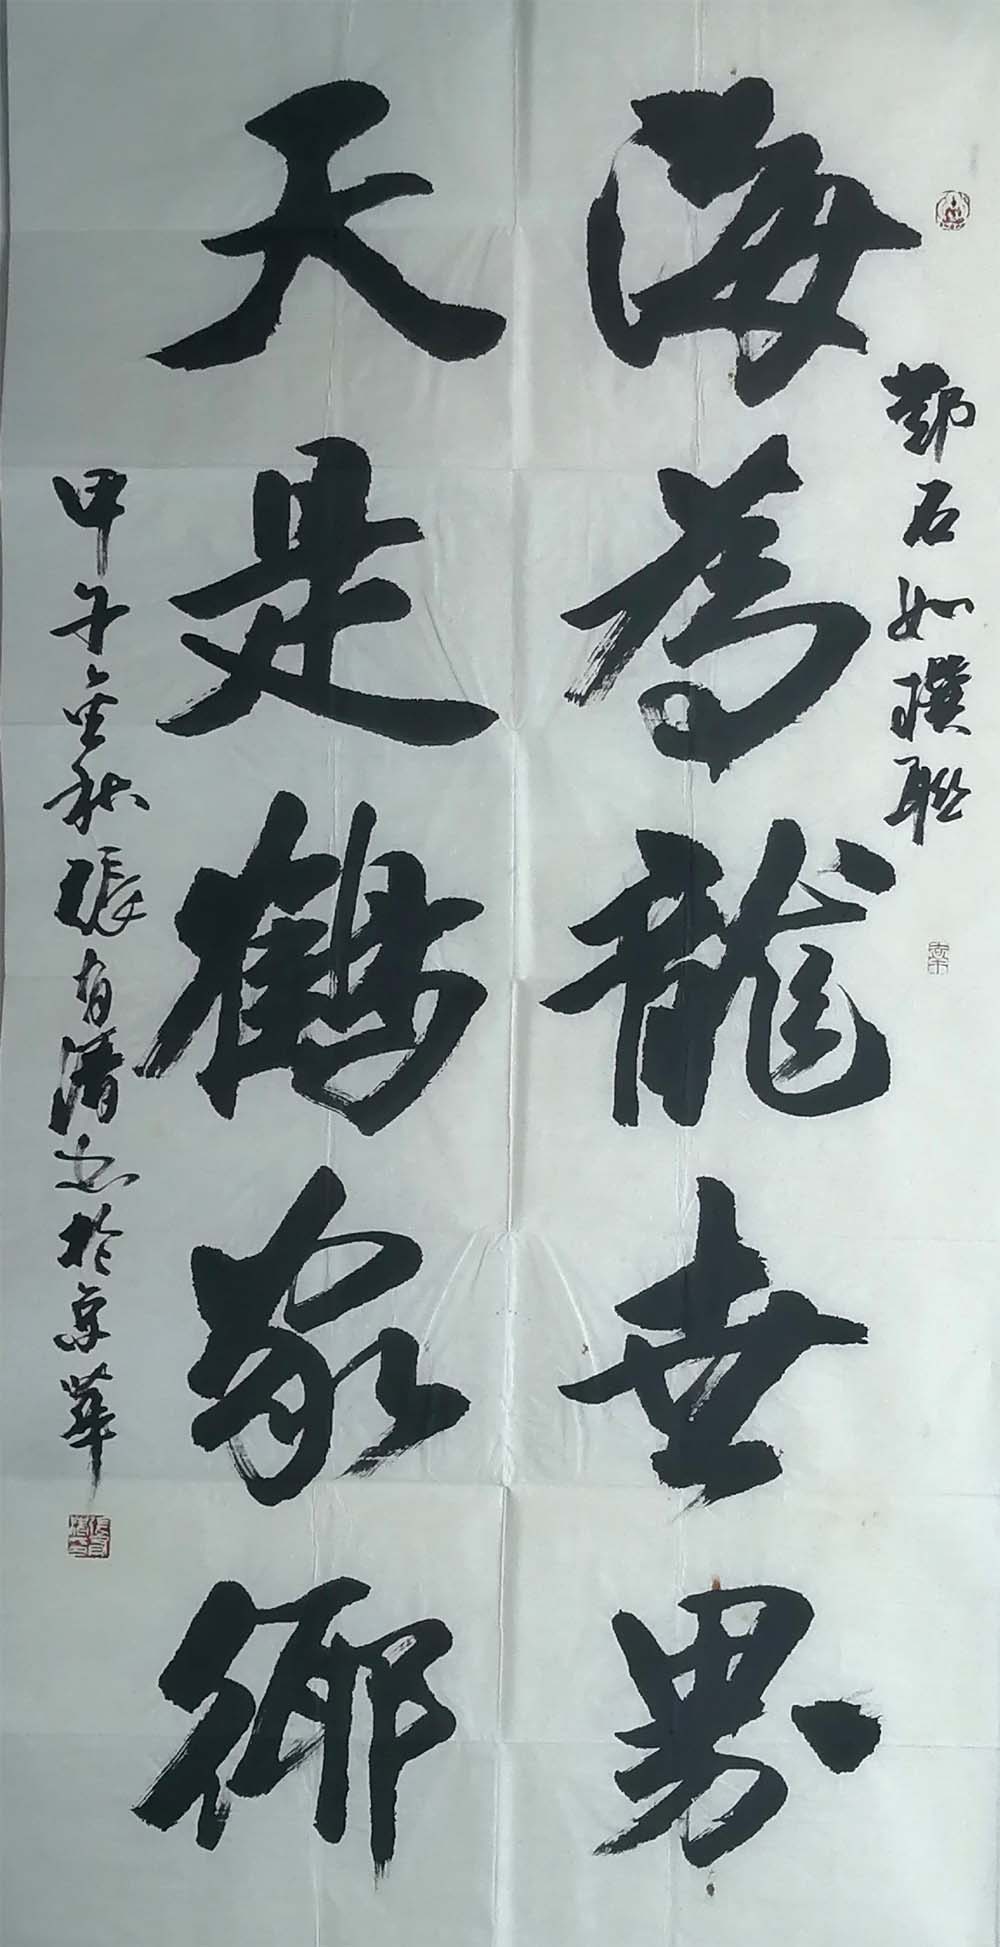 鄧石如撰聯
海為龍世界
天是鶴家鄉
甲午金秋張有清書於京華